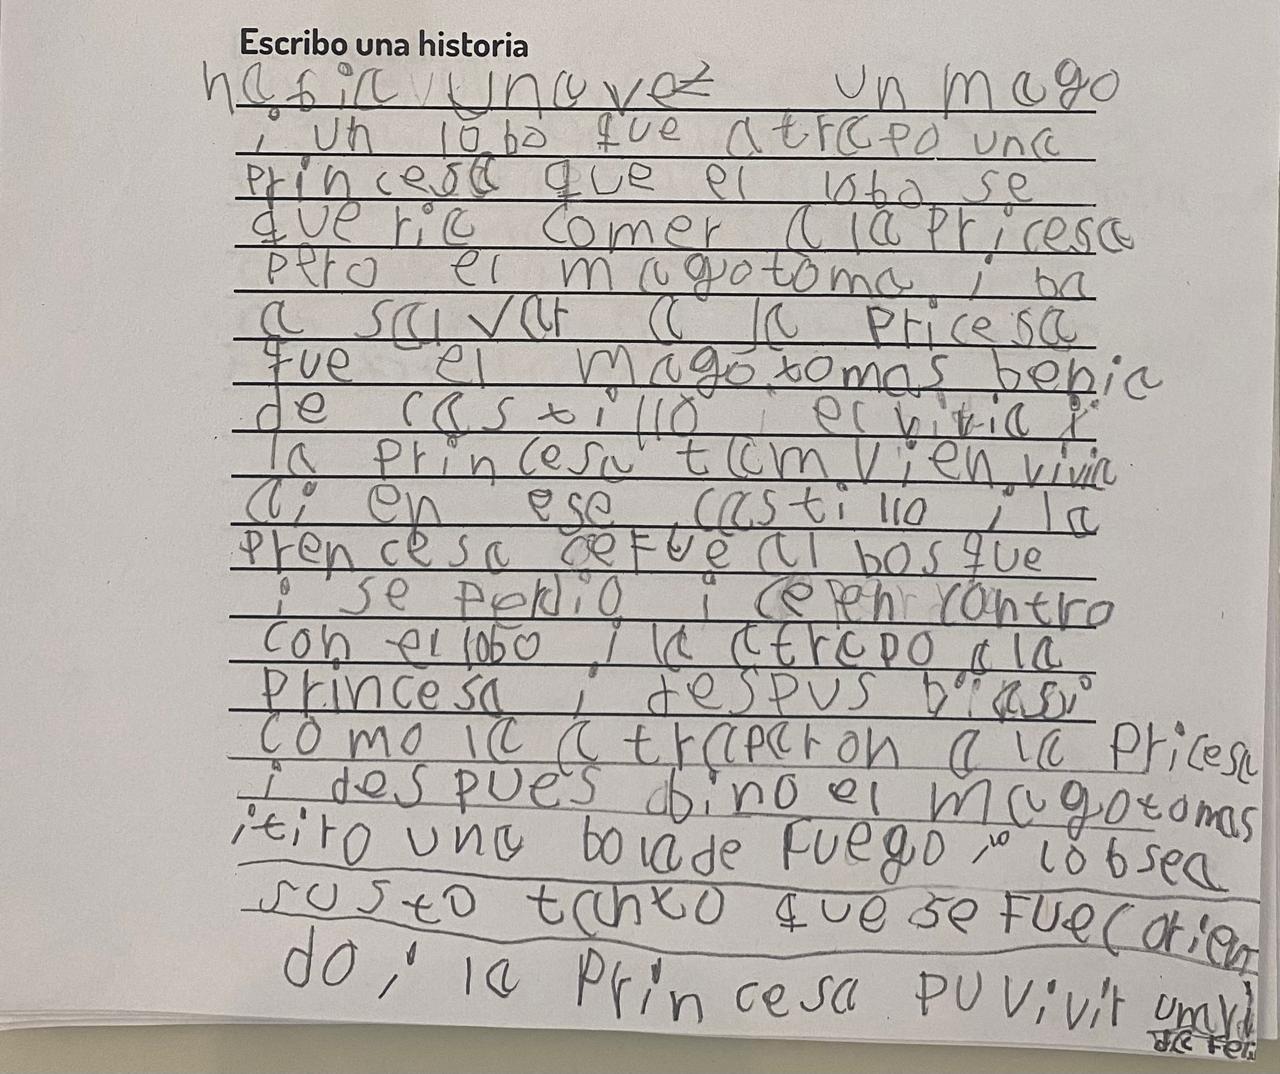 Escribo una historia
había una vez un mago
i un lobo que atrapo una
princesa que el lobo se
queria comer a la Pricesa
pero el mago toma i ba
a salvar a la Pricesa
que el mago tomas benia
de castillo i el vivia i
la princesa tamvien vivia
ai en ese castillo i la
prencesa cefue al bosque
i se perdio i ce encontro
con el lobo i la atrapo a la
princesa i despus
como la atraparon a la Pricesa
i despues bino el mago tomas
i tiro una bola de Fuego i lobsea
susto tanto que se Fue corien
do i la Princesa pu vivir